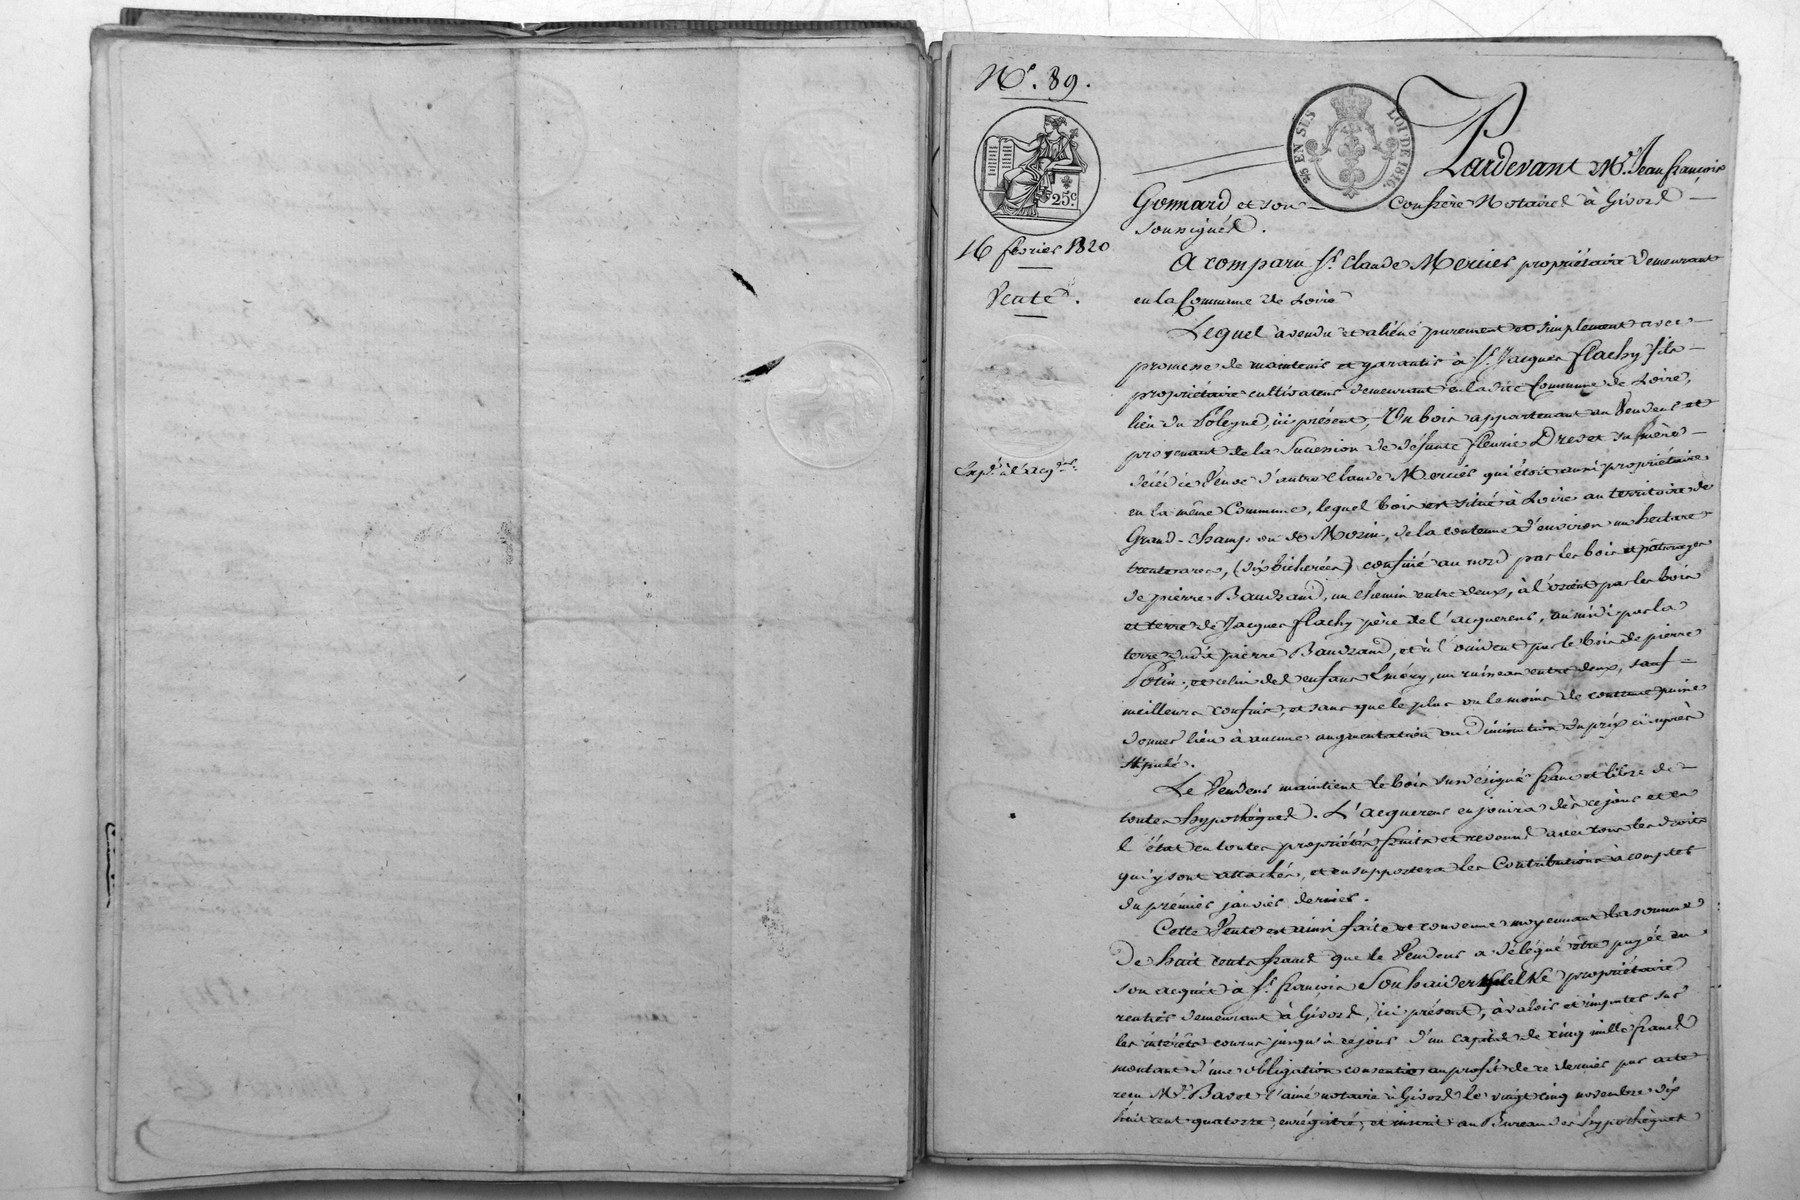 N.º 89.
25 EN SUS
LOI DE 1816.
25ᶜ
16 février 1820
Vente.
Exp.é à l'acq.
Pardevant M.e Jean françois
Gomard et son Confrère Notaires à Givors
soussignés.
A comparu S.r Claude Mercier propriétaire demeurant
en la Commune de Loire
Lequel a vendu et aliéné purement et simplement avec
promesse de maintenir et garantir à S.r Jacques flachy fils
propriétaire cultivateur demeurant en ladite Commune de Loire,
lieu du, ici présent, Un bois appartenant au Vendeur et
provenant de la Succession de défunte fleurie Drevet sa mère
décédée Veuve d'autre Claude Mercier qui étoit aussi propriétaire
en la même Commune, lequel bois est situé à Loire au territoire de
Grand-Champ ou de Morin, de la contenue d'environ un hectare
trente ares, (dix bicherées) confiné au nord par les bois et pâturages
de pierre Baudrand, un chemin entre deux, à l'orient par les bois
et terre de Jacques flachy père de l'acquereur, au midi par la
terre dudit pierre Baudrand, et à l'occident par le bois de pierre
et celui des enfans, un ruisseau entre deux, sauf
meilleurs confins, et sans que le plus ou le moins de contenue puisse
donner lieu à aucune augmentation ou diminution du prix ci après
stipulé.
Le Vendeur maintient le bois susdésigné franc et libre de
toutes hypothèques. L'acquereur en jouira dès ce jour et en
l'état en toutes propriétés, fruits et revenus avec tous les droits
qui y sont attachés, et en supportera les Contributions à compter
du prémier janvier dernier.
Cette Vente est ainsi faite et convenue moyennant la somme
De huit cents francs que le Vendeur a délégué être payée en
son acquit à S.r françois propriétaire
rentier demeurant à Givors, ici présent, à valoir et imputer sur
les intérêts courus jusqu'à ce jour d'un capital de cinq mille francs
montant d'une obligation consentie au profit de ce dernier par acte
reçu M.e Bavot l'ainé notaire à Givors le vingt cinq novembre dix
huit cent quatorze, enrégistré, et inscrit au Bureau des hypothèques